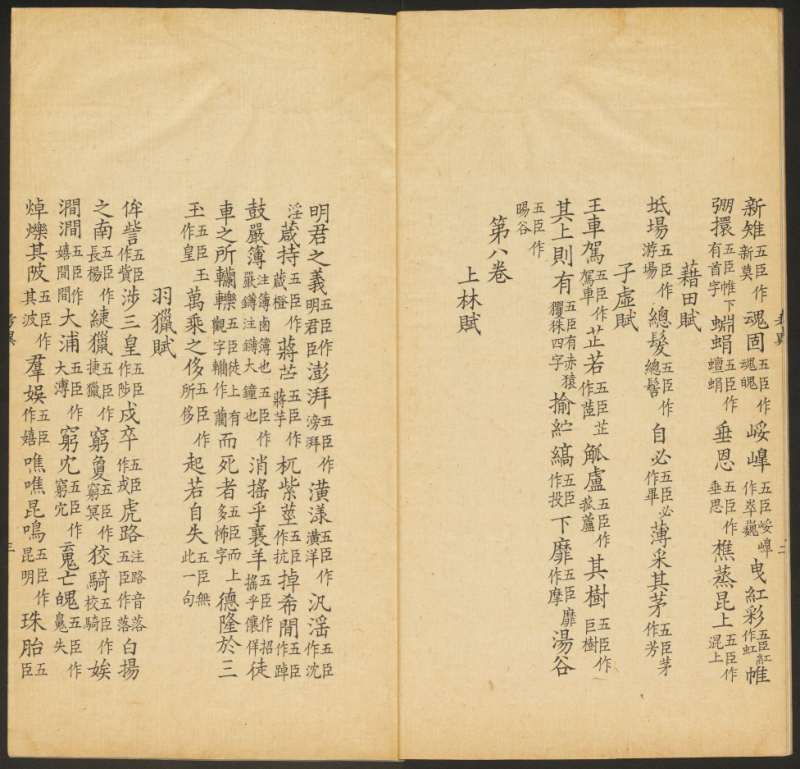 新雉五臣作新莫 魂固五臣作魂魄 崣嶂五臣崣嶂作崒巍 曳紅彩五臣紅作虹 帷
弸擐五臣帷下有首字 蜵蜎五臣作蟺蜎 垂恩五臣作垂思 樵蒸昆上五臣作混上
藉田賦
坻場五臣作游場 總髮五臣作總髫 自必五臣必作畢 薄采其茅五臣茅作芳
子虛賦
王車駕五臣作駕車 芷若五臣芷作茝 觚盧五臣作菰蘆 其樹五臣作巨樹
其上則有五臣有赤猿玃猱四字 揄紵縞五臣作投 下靡五臣靡作摩 湯谷
五臣作暘谷
第八卷
上林賦
明君之義五臣作明君臣 澎湃五臣作滂湃 潢漾五臣作潢洋 汎淫五臣作沈
淫 葴持五臣作葴橙 蔣芧五臣作蔣芋 杌紫莖五臣作抗 掉希間五臣作踔
鼓嚴簿注簿鹵簿也五臣作嚴鑮注鑮大鐘也 消搖乎襄羊五臣作招搖乎儴佯 徒
車之所轥轢五臣徒上有觀字轥作藺 而死者五臣而上多怖字 德隆於三
王五臣王作皇 萬乘之侈五臣作所侈 起若自失五臣無此一句
羽獵賦
侔訾五臣作貲 涉三皇五臣作陟 戍卒五臣作戎 虎路注路音落五臣作落 白揚
之南五臣作長楊 緁獵五臣作捷獵 窮夐五臣作窮冥 狡騎五臣作校騎 娭
澗澗五臣作嬉間間 大浦五臣作大溥 窮冘五臣作窮宂 亶亡魄五臣作魂失
焯爍其陂五臣作其波 羣娛五臣作嬉 噍噍昆鳴五臣作昆明 珠胎五臣